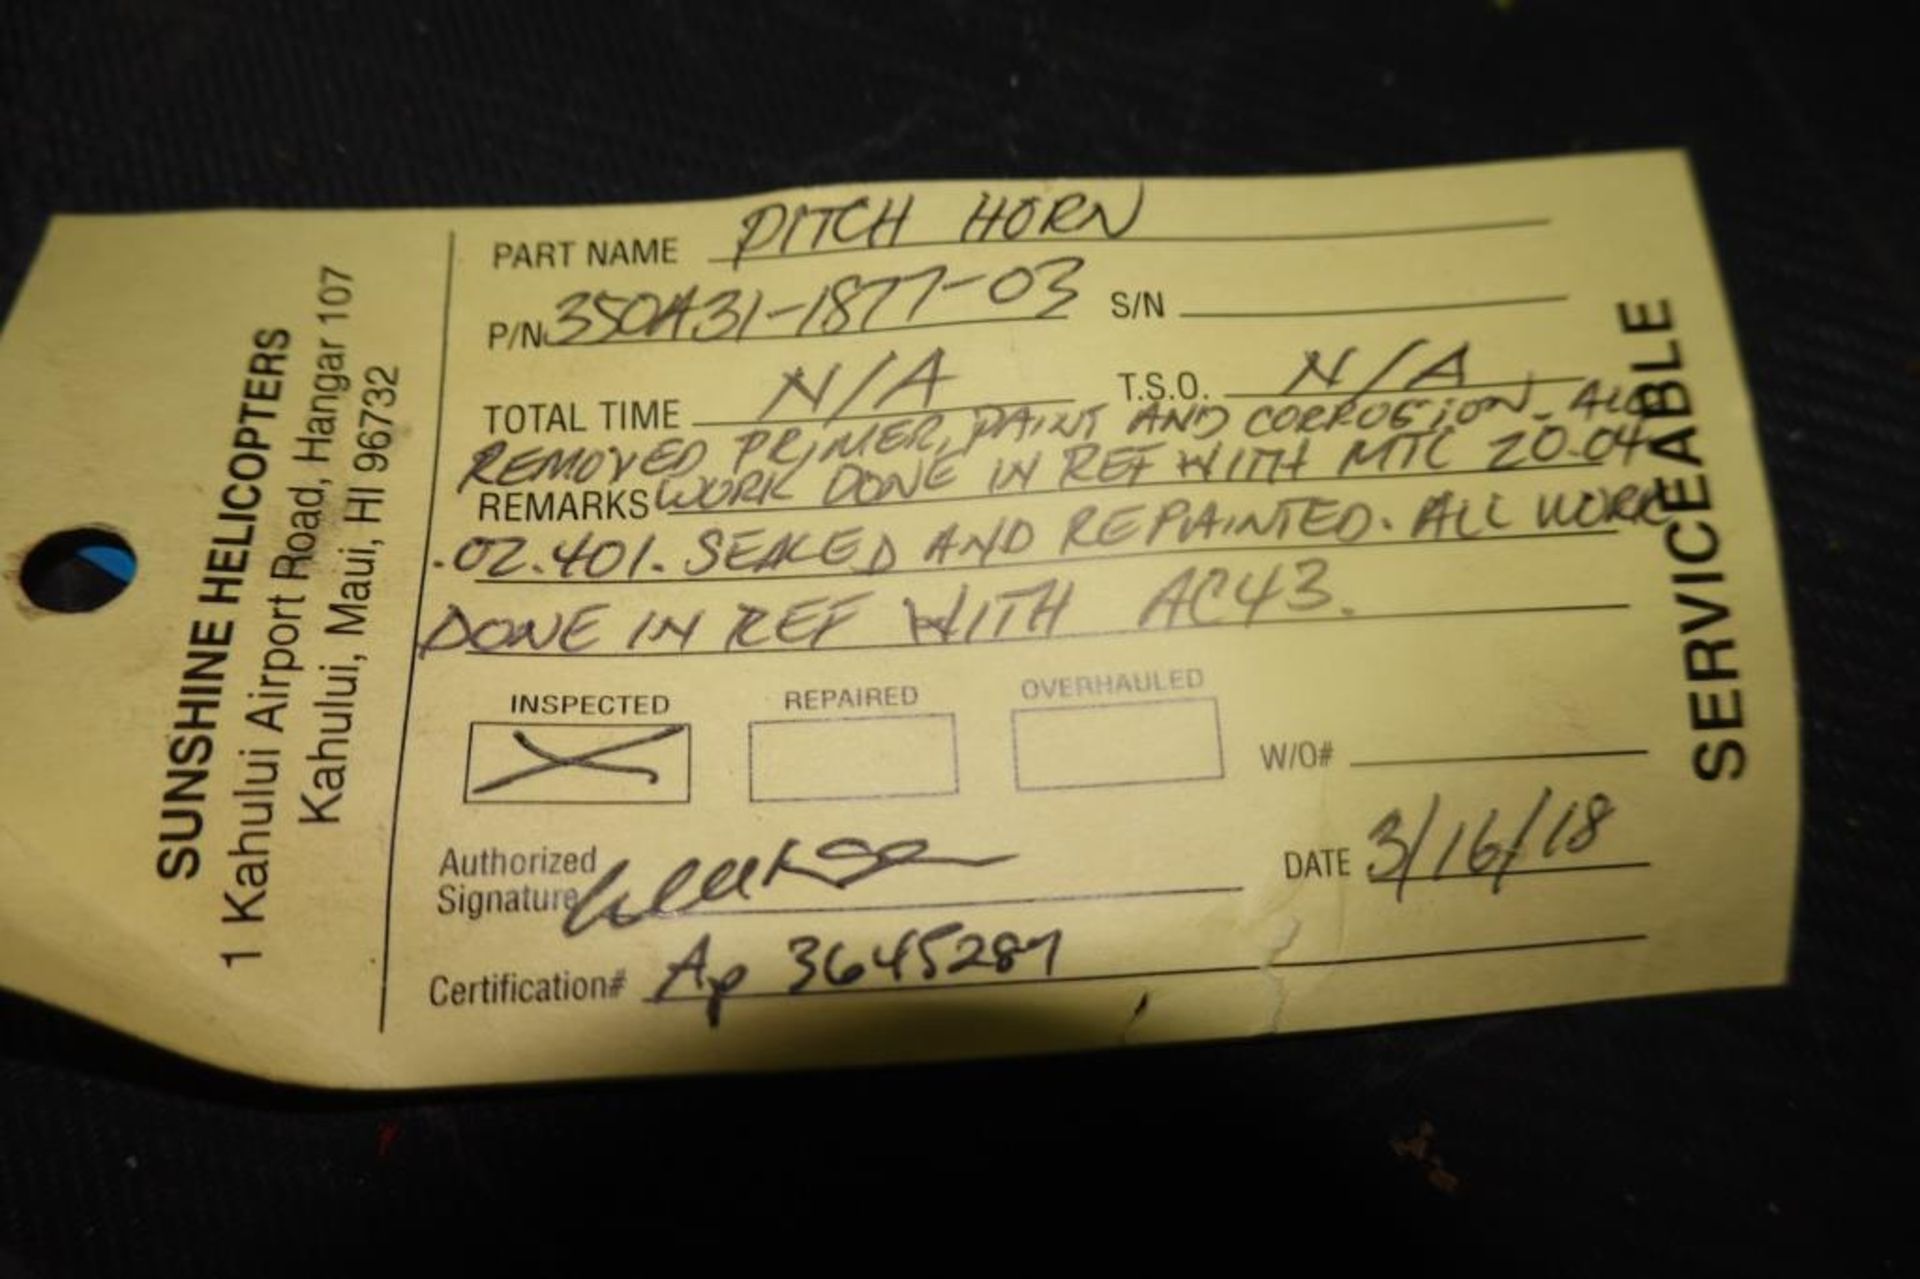 SUNSHINE HELICOPTERS
1 Kahului Airport Road, Hangar 107
Kahului, Maui, HI 96732
PART NAME PITCH HORN
P/N 350A31-1877-03 S/N
TOTAL TIME N/A T.S.O. N/A
REMOVED PRIMER, PAINT AND CORROSION. ALL
REMARKS WORK DONE IN REF WITH MTC 20.04
.02.401. SEALED AND REPAINTED. ALL WORK
DONE IN REF WITH AC43.
INSPECTED REPAIRED OVERHAULED
X W/O#
Authorized
Signature DATE 3/16/18
Certification# Ap 3645287
SERVICEABLE